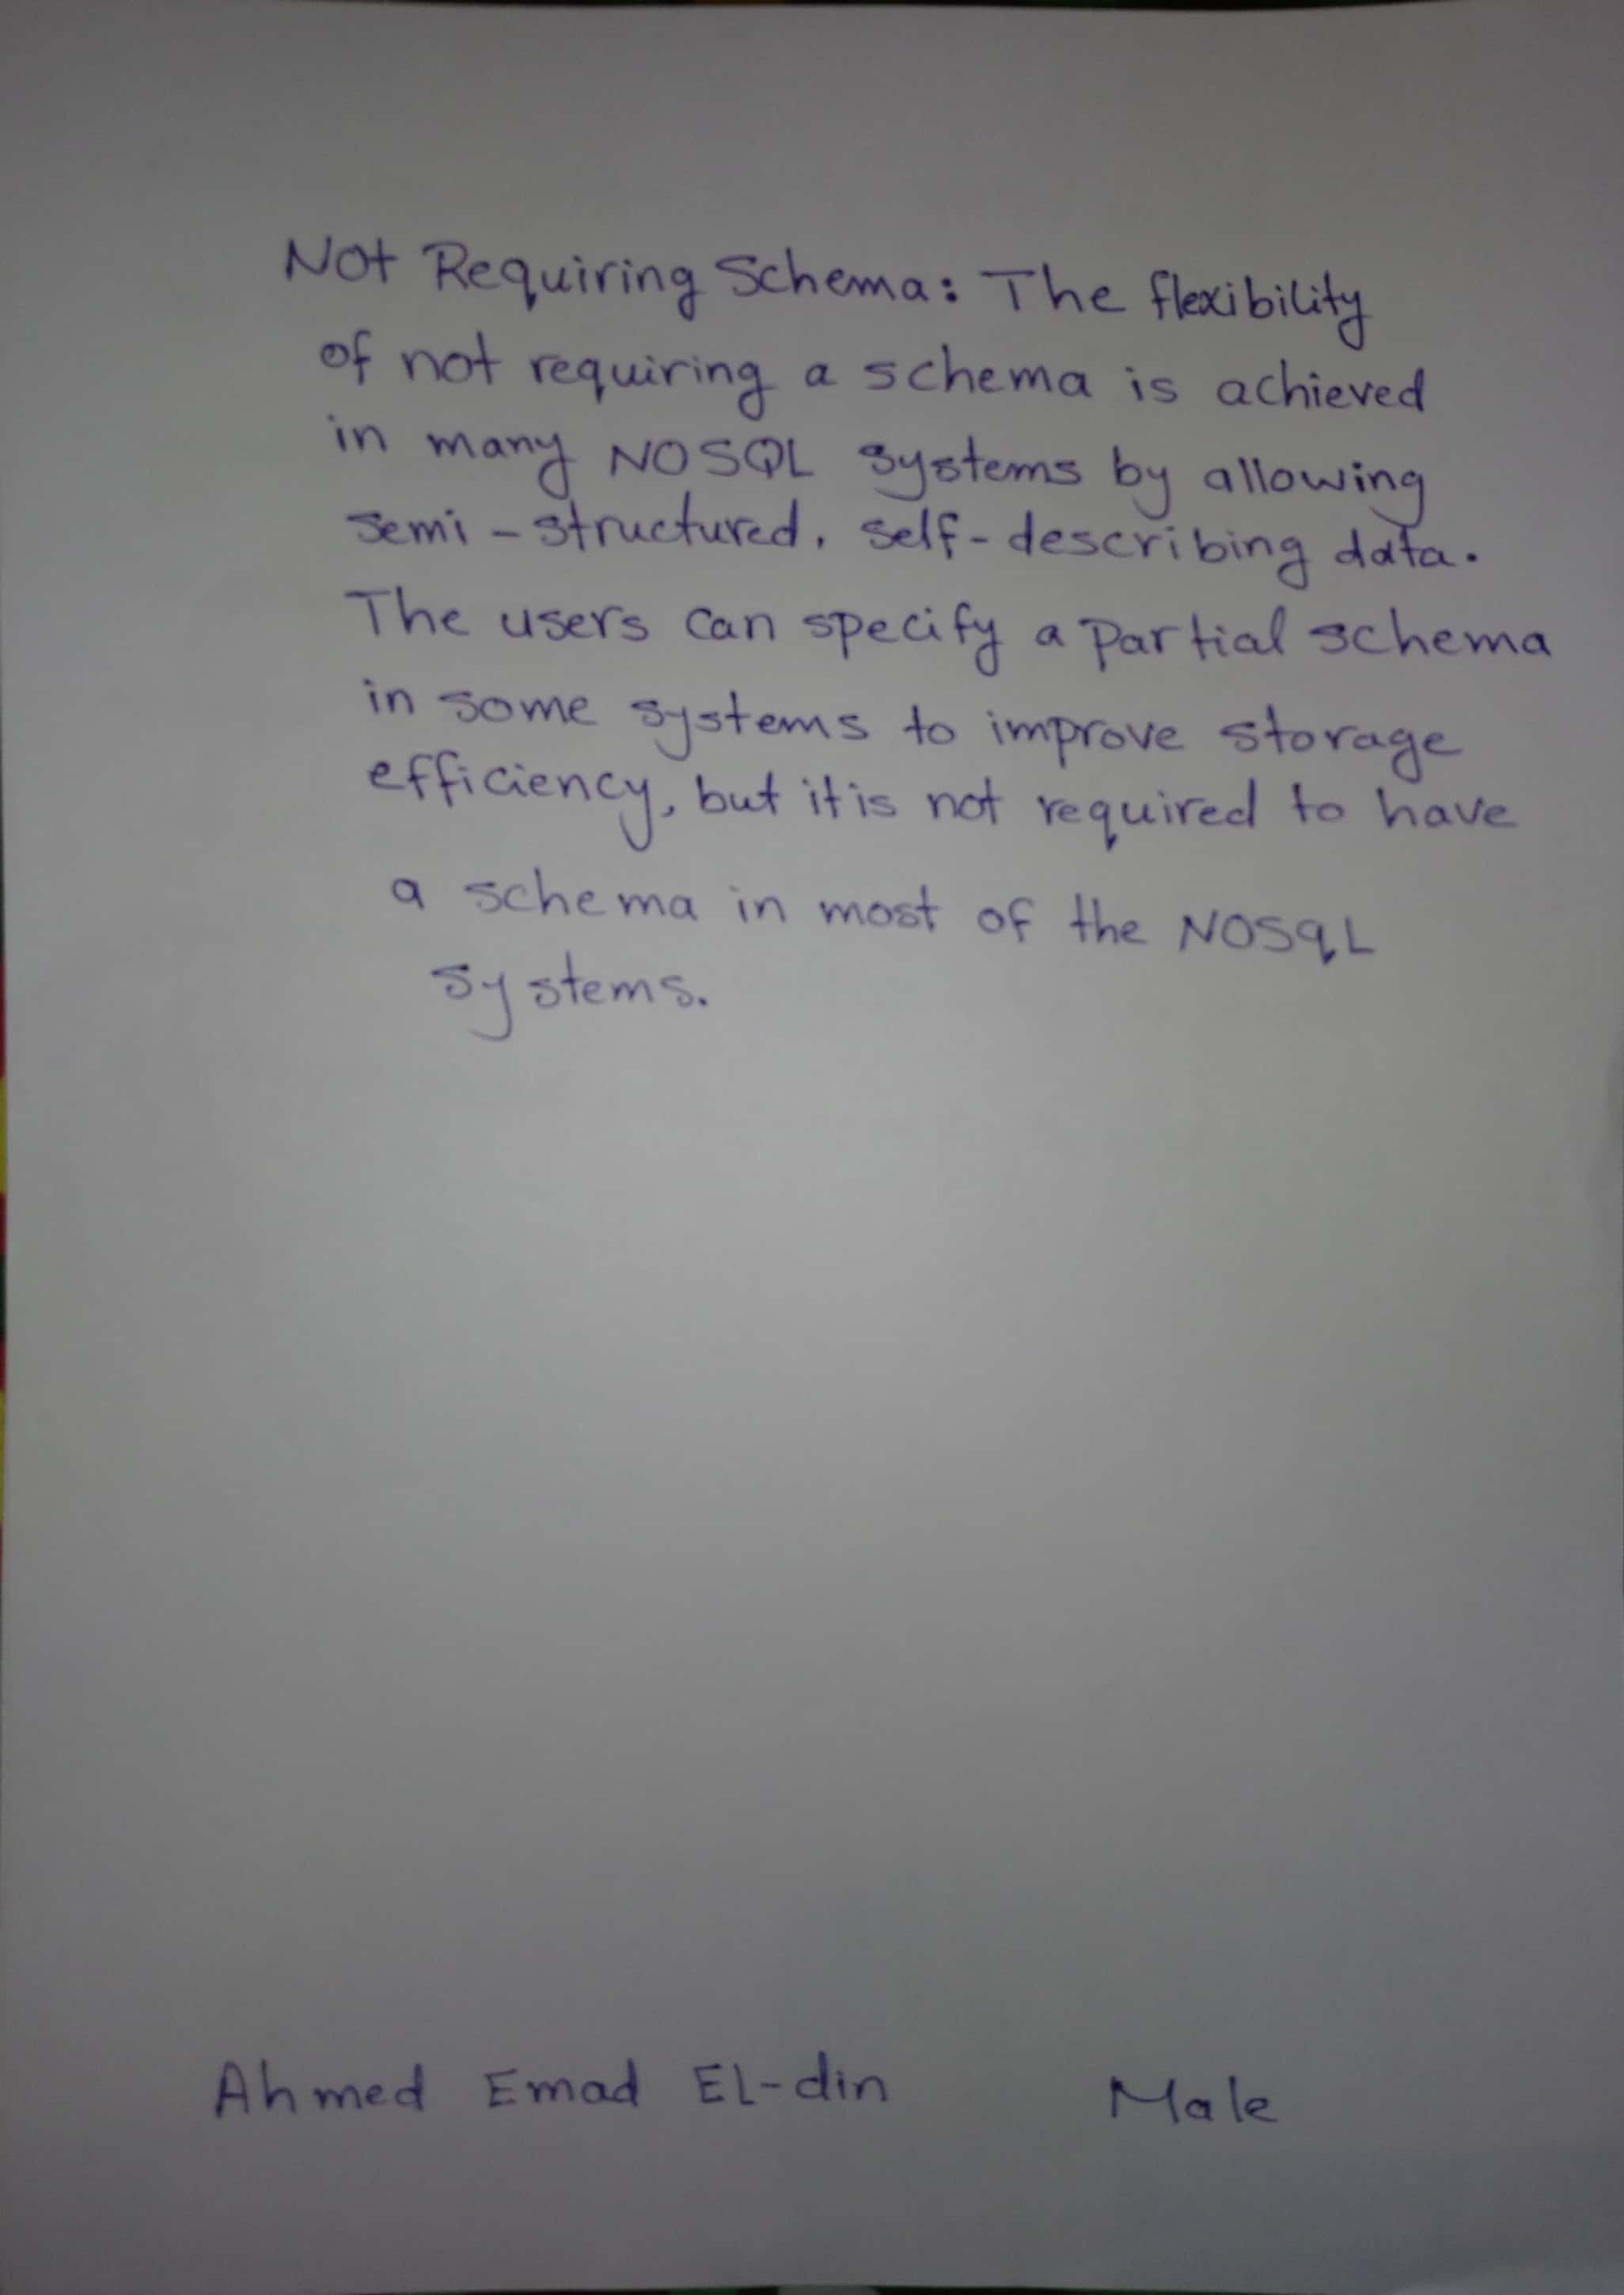 Not Requiring Schema: The flexibility
of not requiring a schema is achieved
in many NOSQL systems by allowing
semi-structured, self-describing data.
The users can specify a partial schema
in some systems to improve storage
efficiency, but it is not required to have
a schema in most of the NOSqL
systems.
Ahmed Emad EL-din Male